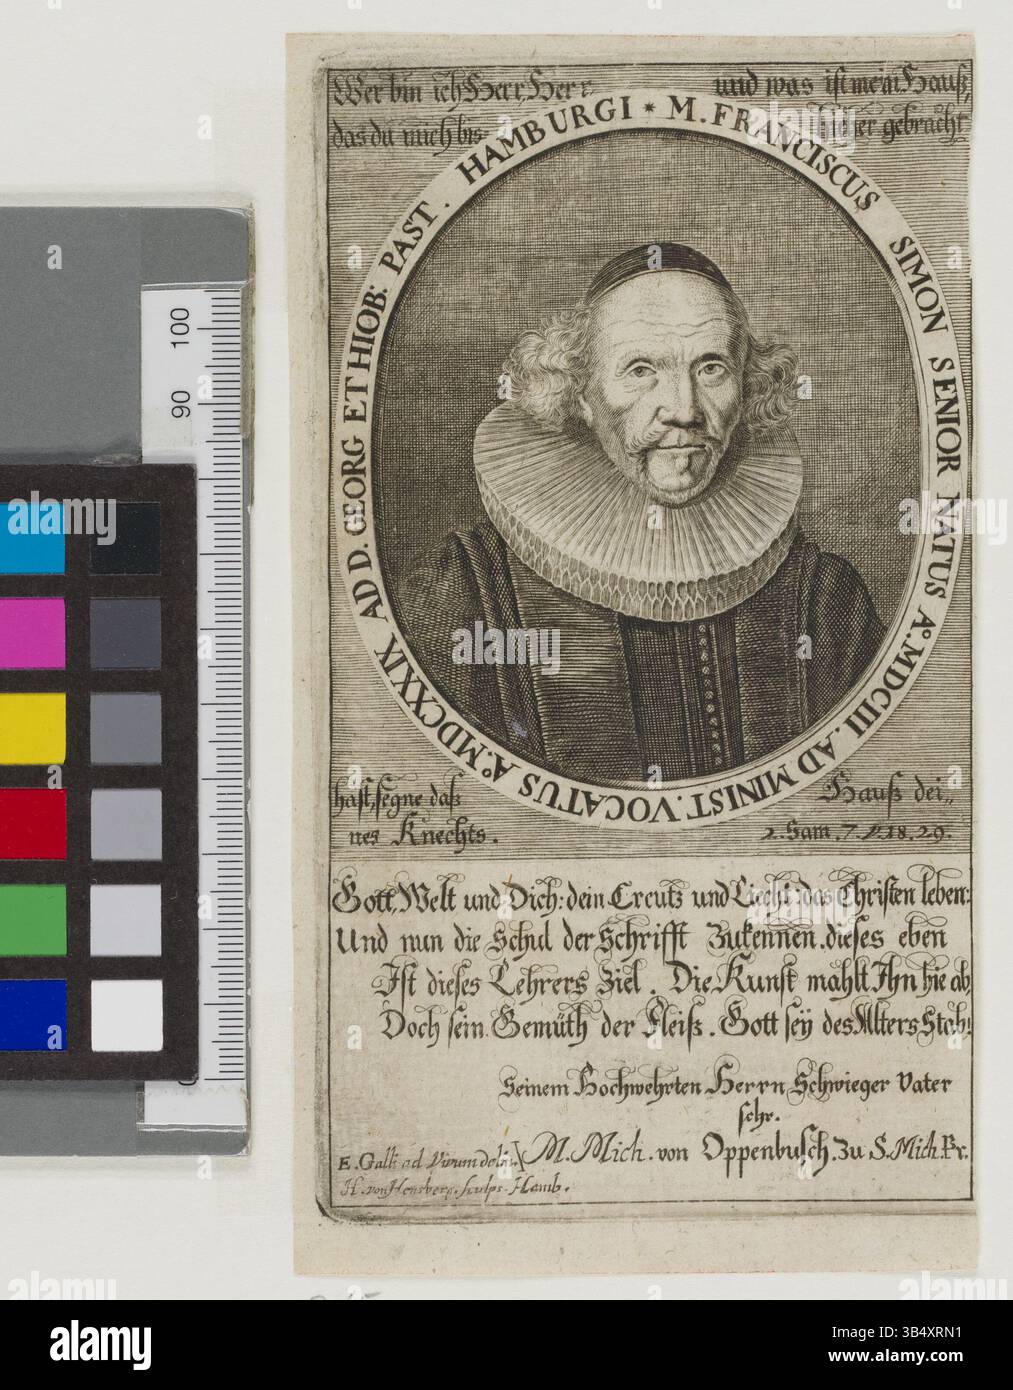 Wer bin ich Herr, Herr, und was ist mein Hauß,
das du mich bis hieher gebracht
M. FRANCISCUS SIMON SENIOR NATUS Aº. MDCIII. AD MINIST. VOCATUS Aº. MDCXXIX AD D. GEORG ET HIOB: PAST. HAMBURGI *
hast, segne daß Hauß dei„
nes Knechts. 2. Sam. 7. V. 18. 29.
Gott, Welt und Dich: dein Creutz und Liecht: das Christen leben:
Und nun die Schul der Schrifft zu kennen. dieses eben
Ist dieses Lehrers Ziel. Die Kunst mahlt Ihn hie ab,
Doch sein Gemüth der Fleiß. Gott sey des Alters Stab!
Seinem Hochwehrten Herrn Schwieger Vater
schr.
M. Mich. von Oppenbusch. Zu S. Mich. Pr.
E. Galli ad Vivum deli.
H. von Hensberg. sculps. Hamb.
100
90
alamy
Image ID: 3B4XRN1
www.alamy.com